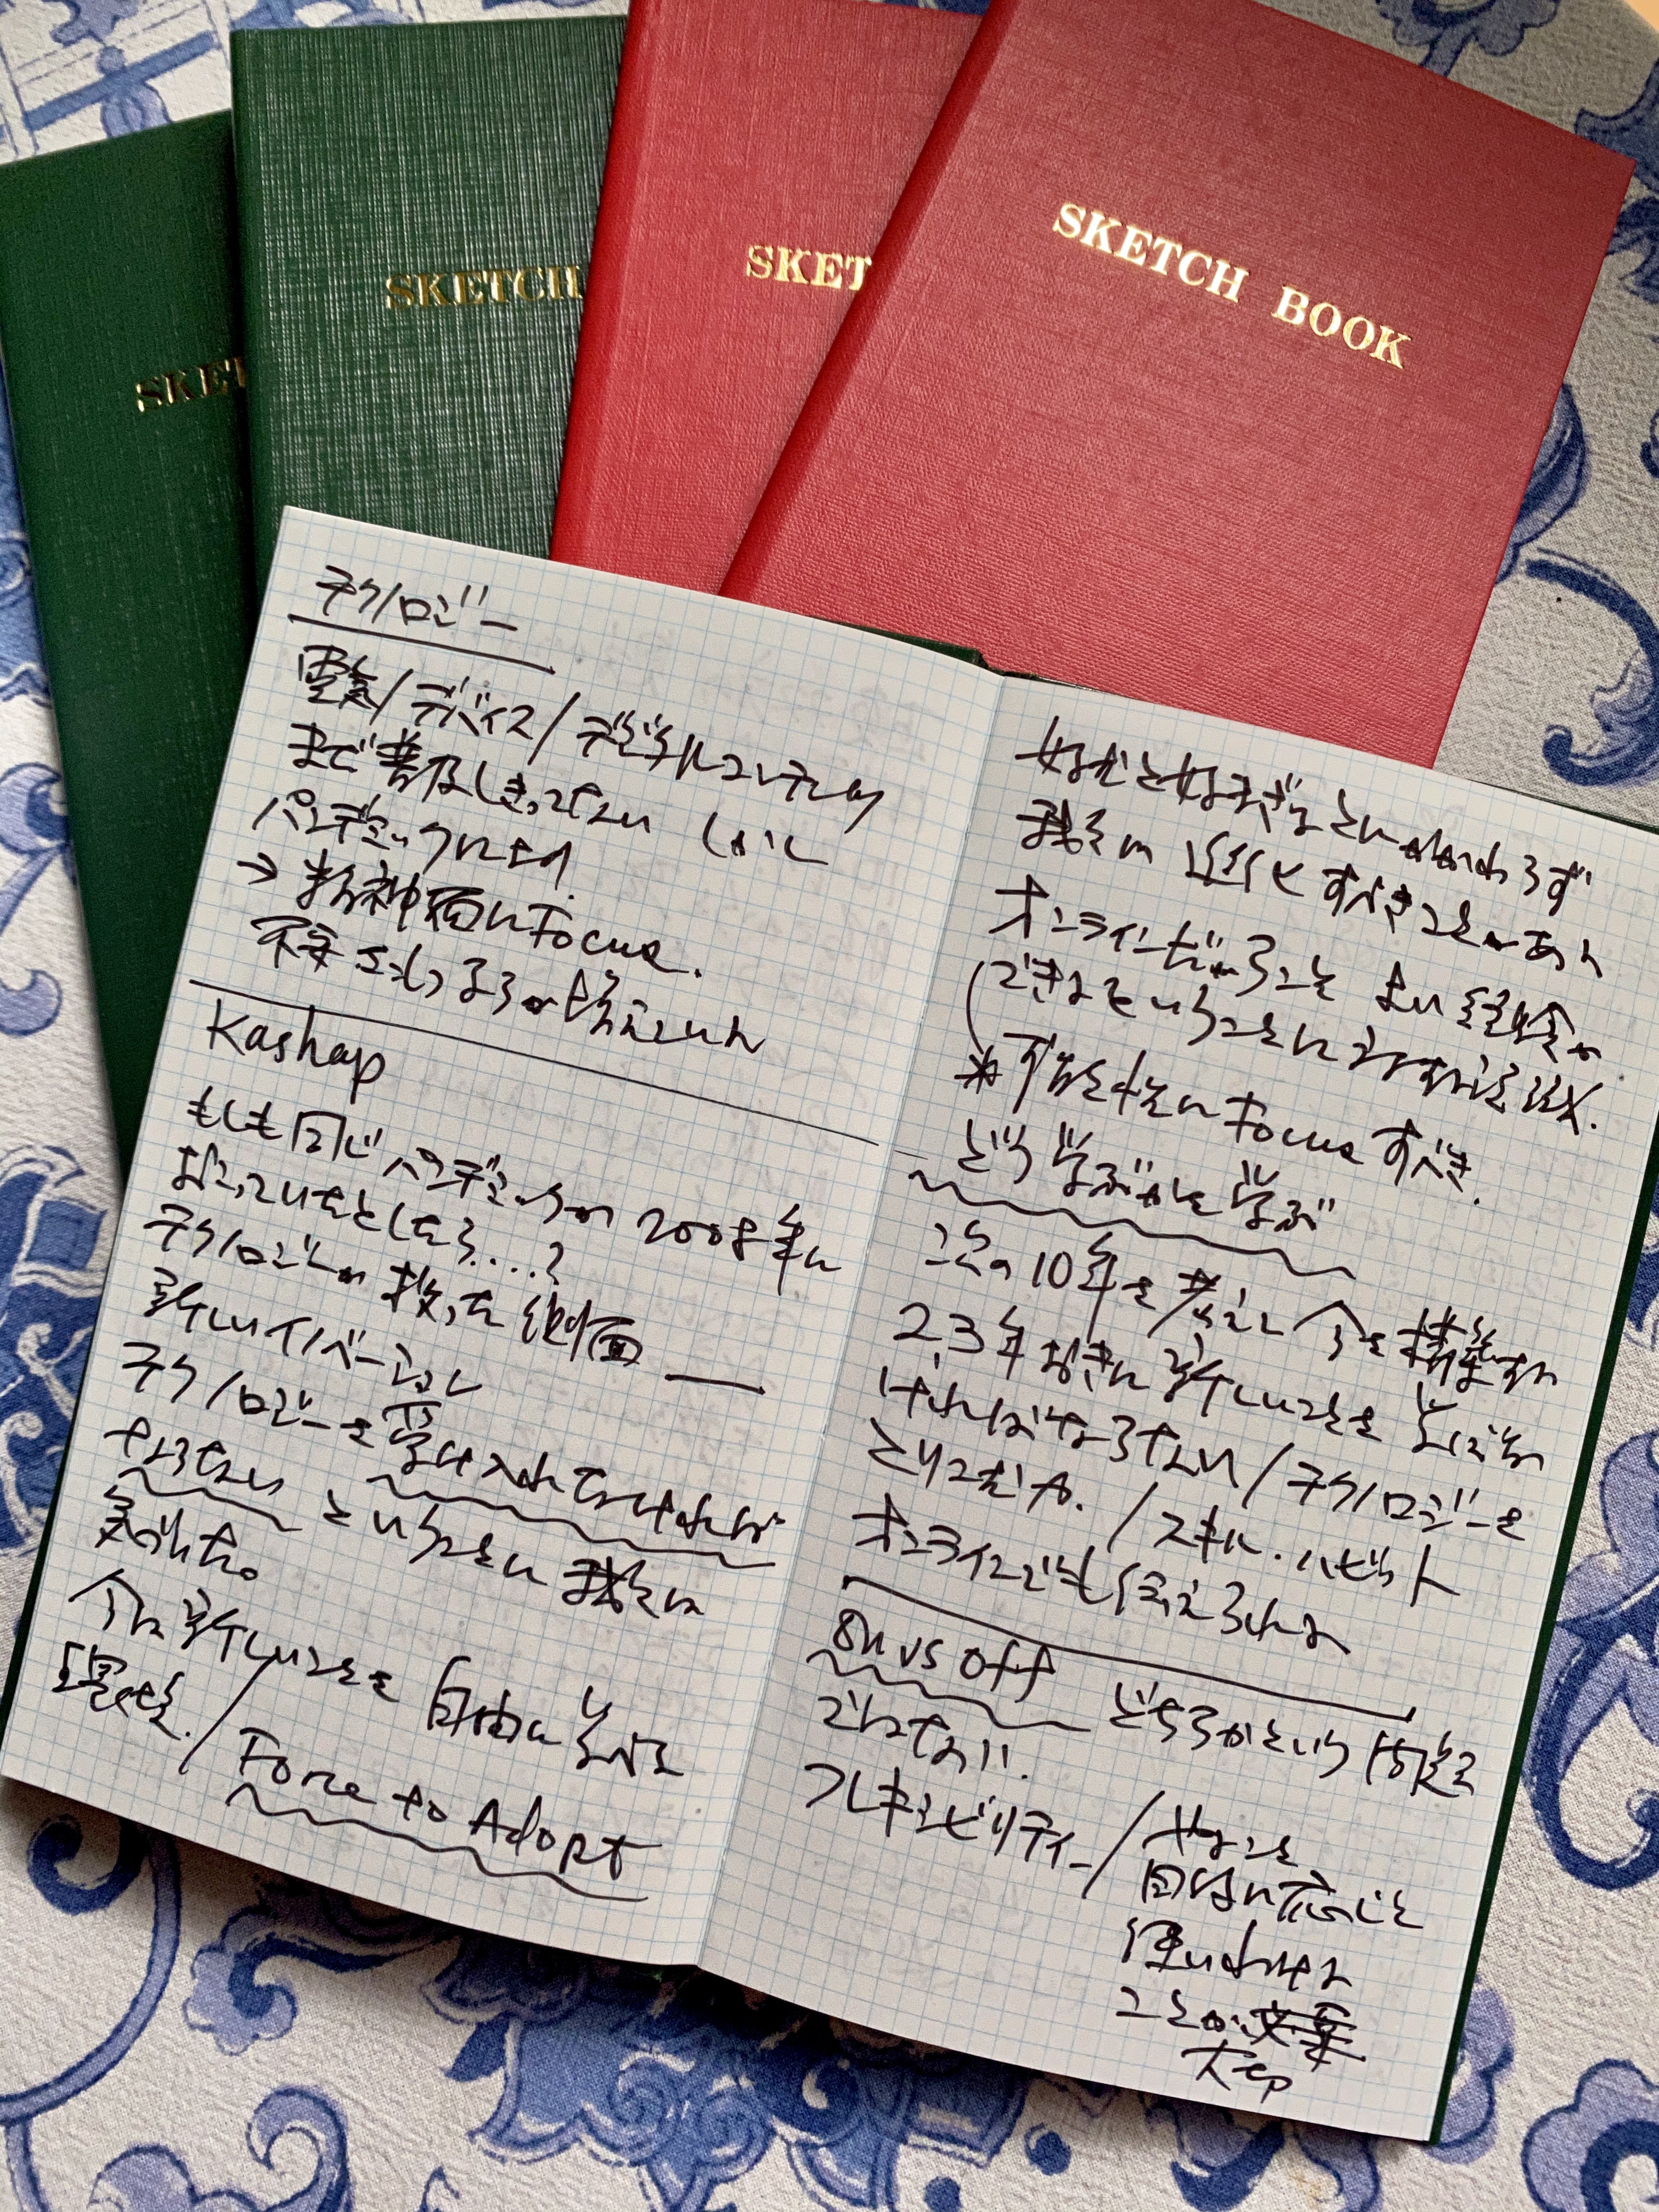 SKET
SKETCH
SKET
SKETCH BOOK
テクノロジー
電気/デバイス/デジタルコンテンツ
まで普及しきってない しかし
パンデミックにより
→ 精神面にFocus.
Kashap
もしも同じパンデミックが2008年に
おこっていたとしたら....?
テクノロジーが救った側面
新しいイノベーション
テクノロジーを受け入れなければ
ならない ということに我々は
気づいた。
今は新しいことを自由に学べる
環境。/ Force to Adopt
好むと好まざるとにかかわらず
我々は 近代化すべきことがあり
オンラインだからこそ よい経験が
できるということに対する認識.
*可能性にFocusすべき.
どう学ぶかを学ぶ
次の10年を考えて 今を構築する
2,3年おきに新しいことを学ばな
ければならない/テクノロジーを
とりこむ力. /スキル・ハビット
オンラインでも伝えられる
On vs Off どちらかという問題
ではない!!
フレキシビリティー/
目的に応じて
使いわける
ことが
大切